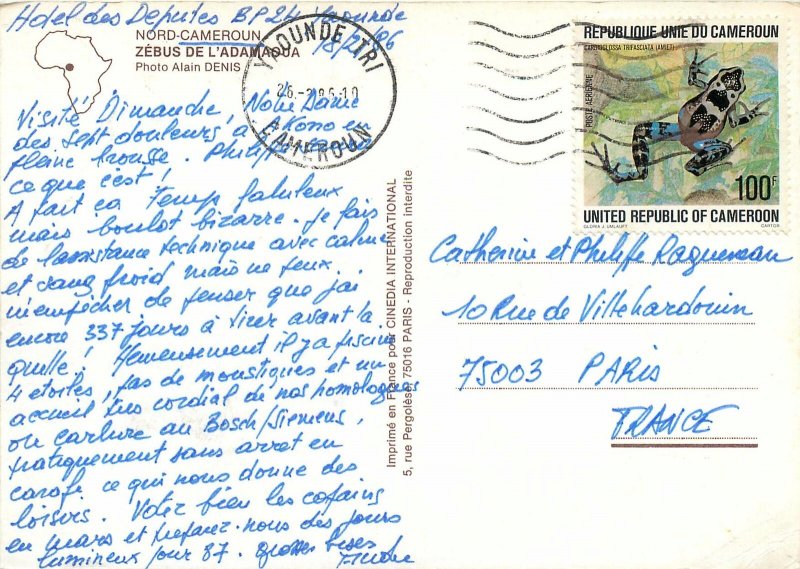 Hotel des Deputes BP 24 Yaounde
18/2/86
NORD-CAMEROUN
ZÉBUS DE L'ADAMAOUA
Photo Alain DENIS
Visité Dimanche, Notre Dame
des sept douleurs à Kono en
pleine brousse.
ce que c'est !
A part ça Temps fabuleux
mais boulot bizarre. Je fais
de l'assistance technique avec calme
et sang froid mais ne peux
m'empêcher de penser que j'ai
encore 337 jours à tirer avant la
quille ! Heureusement il y a piscine
4 étoiles, pas de moustiques et un
accueil très cordial de nos homologues
on carbure au Bosch/Siemens,
pratiquement sans arret en
carafe ce qui nous donne des
loisirs. Votez bien les copains
en mars et préparez-nous des jours
lumineux pour 87. Grosses bises
YAOUNDE TRI
CAMEROUN
Imprimé en France pour CINEDIA INTERNATIONAL
5, rue Pergolèse, 75016 PARIS - Reproduction interdite
REPUBLIQUE UNIE DU CAMEROUN
CARDIOGLOSSA TRIFASCIATA (AMIET)
POSTE AERIENNE
100F
UNITED REPUBLIC OF CAMEROON
GLORIA J. UMLAUFT
CARTOR
Catherine et Philippe Ragueneau
10 Rue de Villehardouin
75003 PARIS
FRANCE